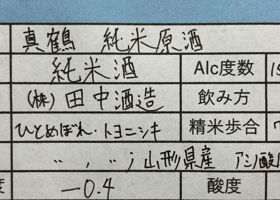 真鶴 純米原酒
純米酒 Alc度数
(株)田中酒造 飲み方
ひとめぼれ・トヨニシキ 精米歩合
〃 , 〃 ; 山形県産
度 -0.4 酸度